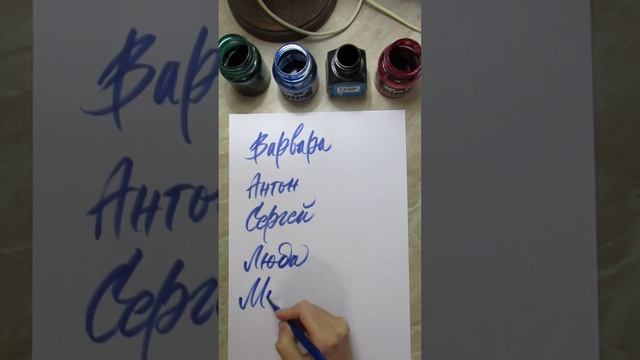 Варвара
Антон
Сергей
Люда
М